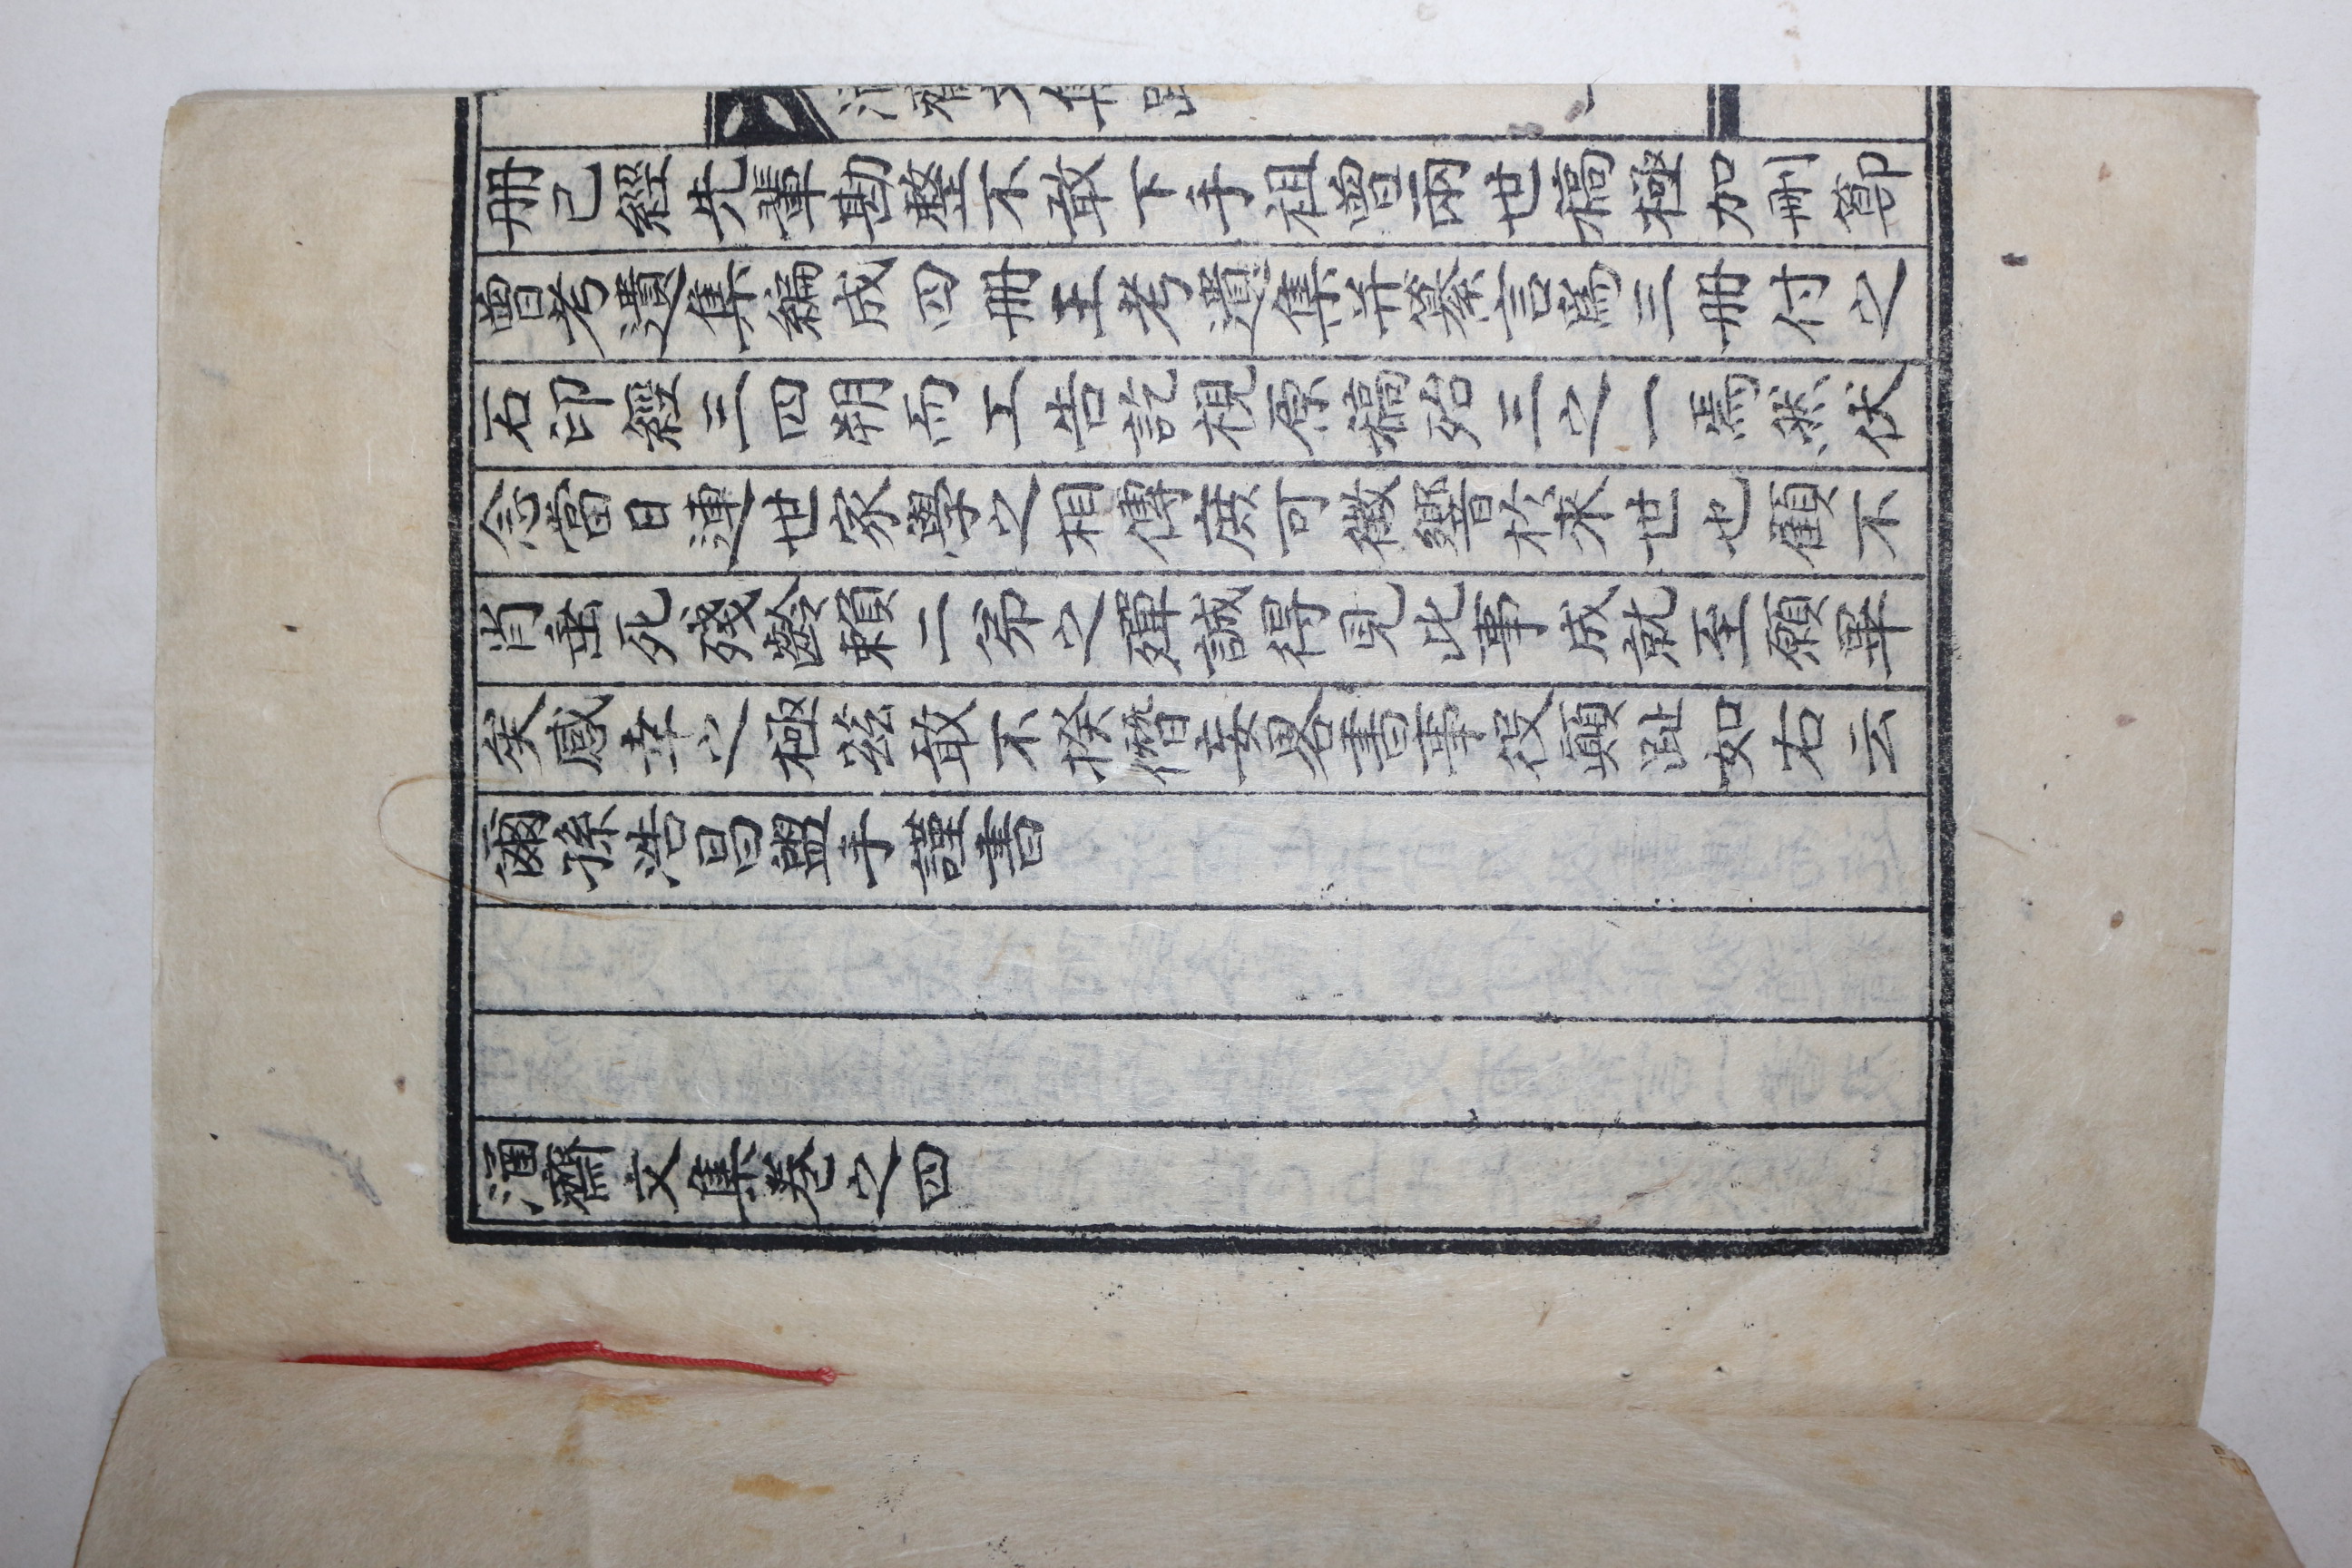 涵齋文集跋 一
册已經先輩勘整不敢下手祖曾兩世稿極加刪節
曾考遺集編成四册王考遺集幷纂言爲三册付之
石印經三四朔而工告訖視原稿殆三之一焉然伏
念當日連世家學之相傳庶可徵響於來世也顧不
肖垂死殘齡賴二弟之殫誠得見此事成就至願畢
矣感幸之極玆敢不揆僭妄畧書事役顚趾如右云
爾孫浩昌盥手謹書
涵齋文集卷之四